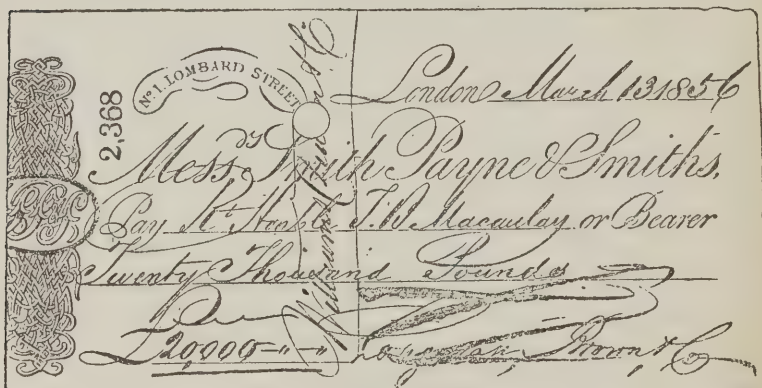 No. 1. LOMBARD STREET
London March 13 1856
2,368
Messrs Smith Payne & Smiths.
Pay Rt Honble T. B. Macaulay or Bearer
Twenty Thousand Pounds
£20,000 - " - " Longman Brown & Co
Williams & Co